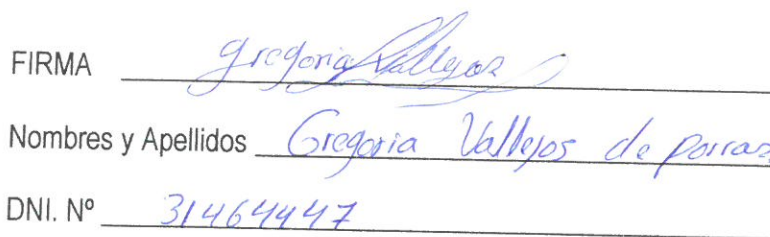 FIRMA gregoria Vallejoz
Nombres y Apellidos Gregoria Vallejos de porraz
DNI. Nº 31464447